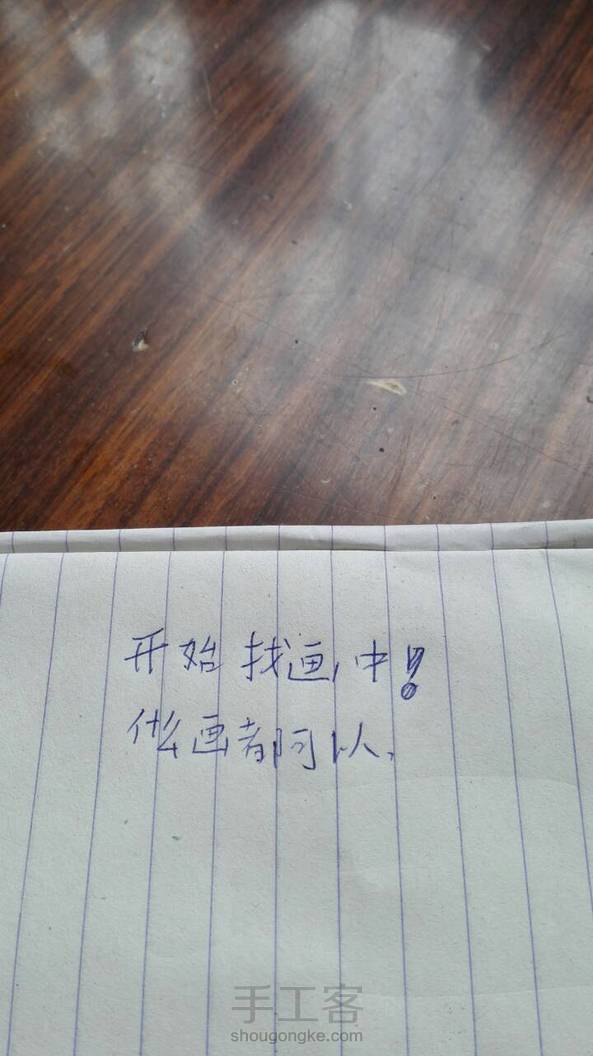 开始找画中！
什么画都阿以、
手工客
shougongke.com